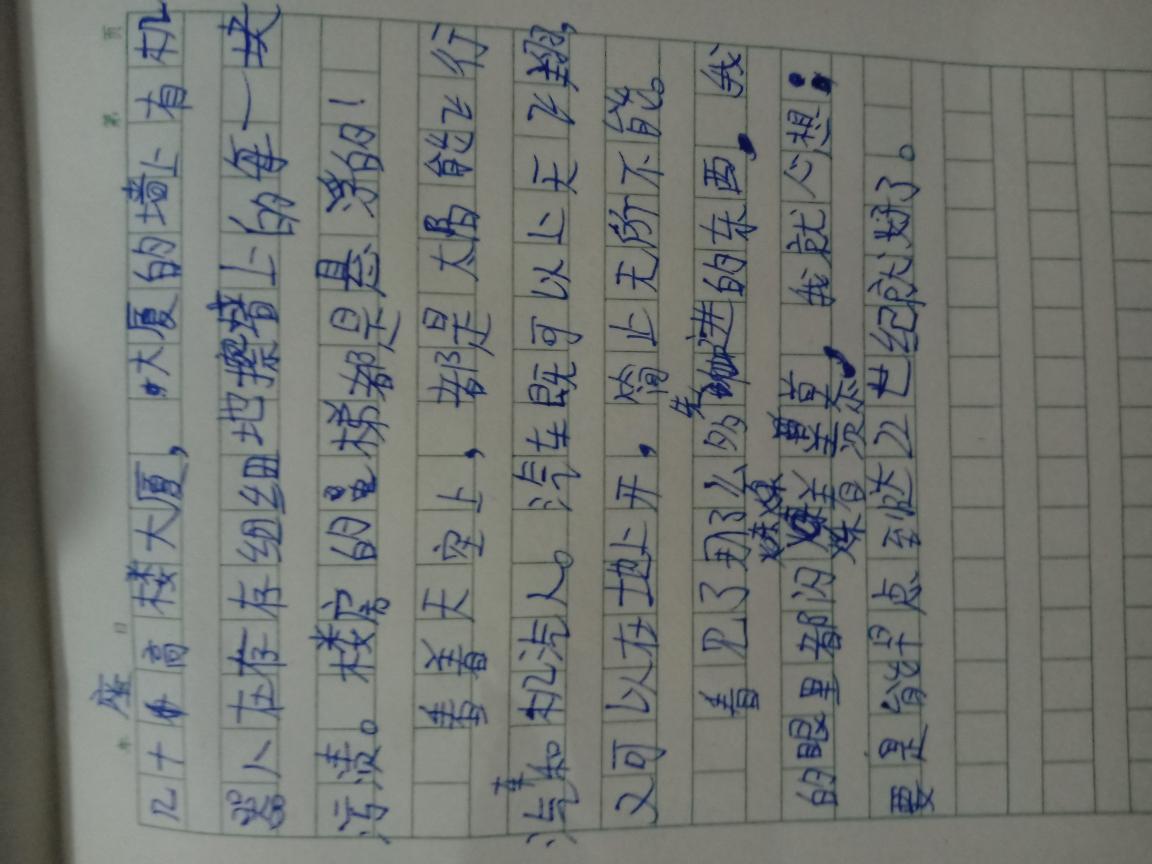 第 页
日
几十座高楼大厦，大厦的墙上有机
器人在存存细细地擦墙上的每一块
污渍。楼房的电梯都是悬浮的！
看看天空上，都是大能飞行
汽车和机汽人。汽车既可以上天飞翔，
又可以在地上开，简止无所不能。
看见了那么多先进的东西，我
的眼里都闪我就心想：
要是能早点至达22世纪就好了。